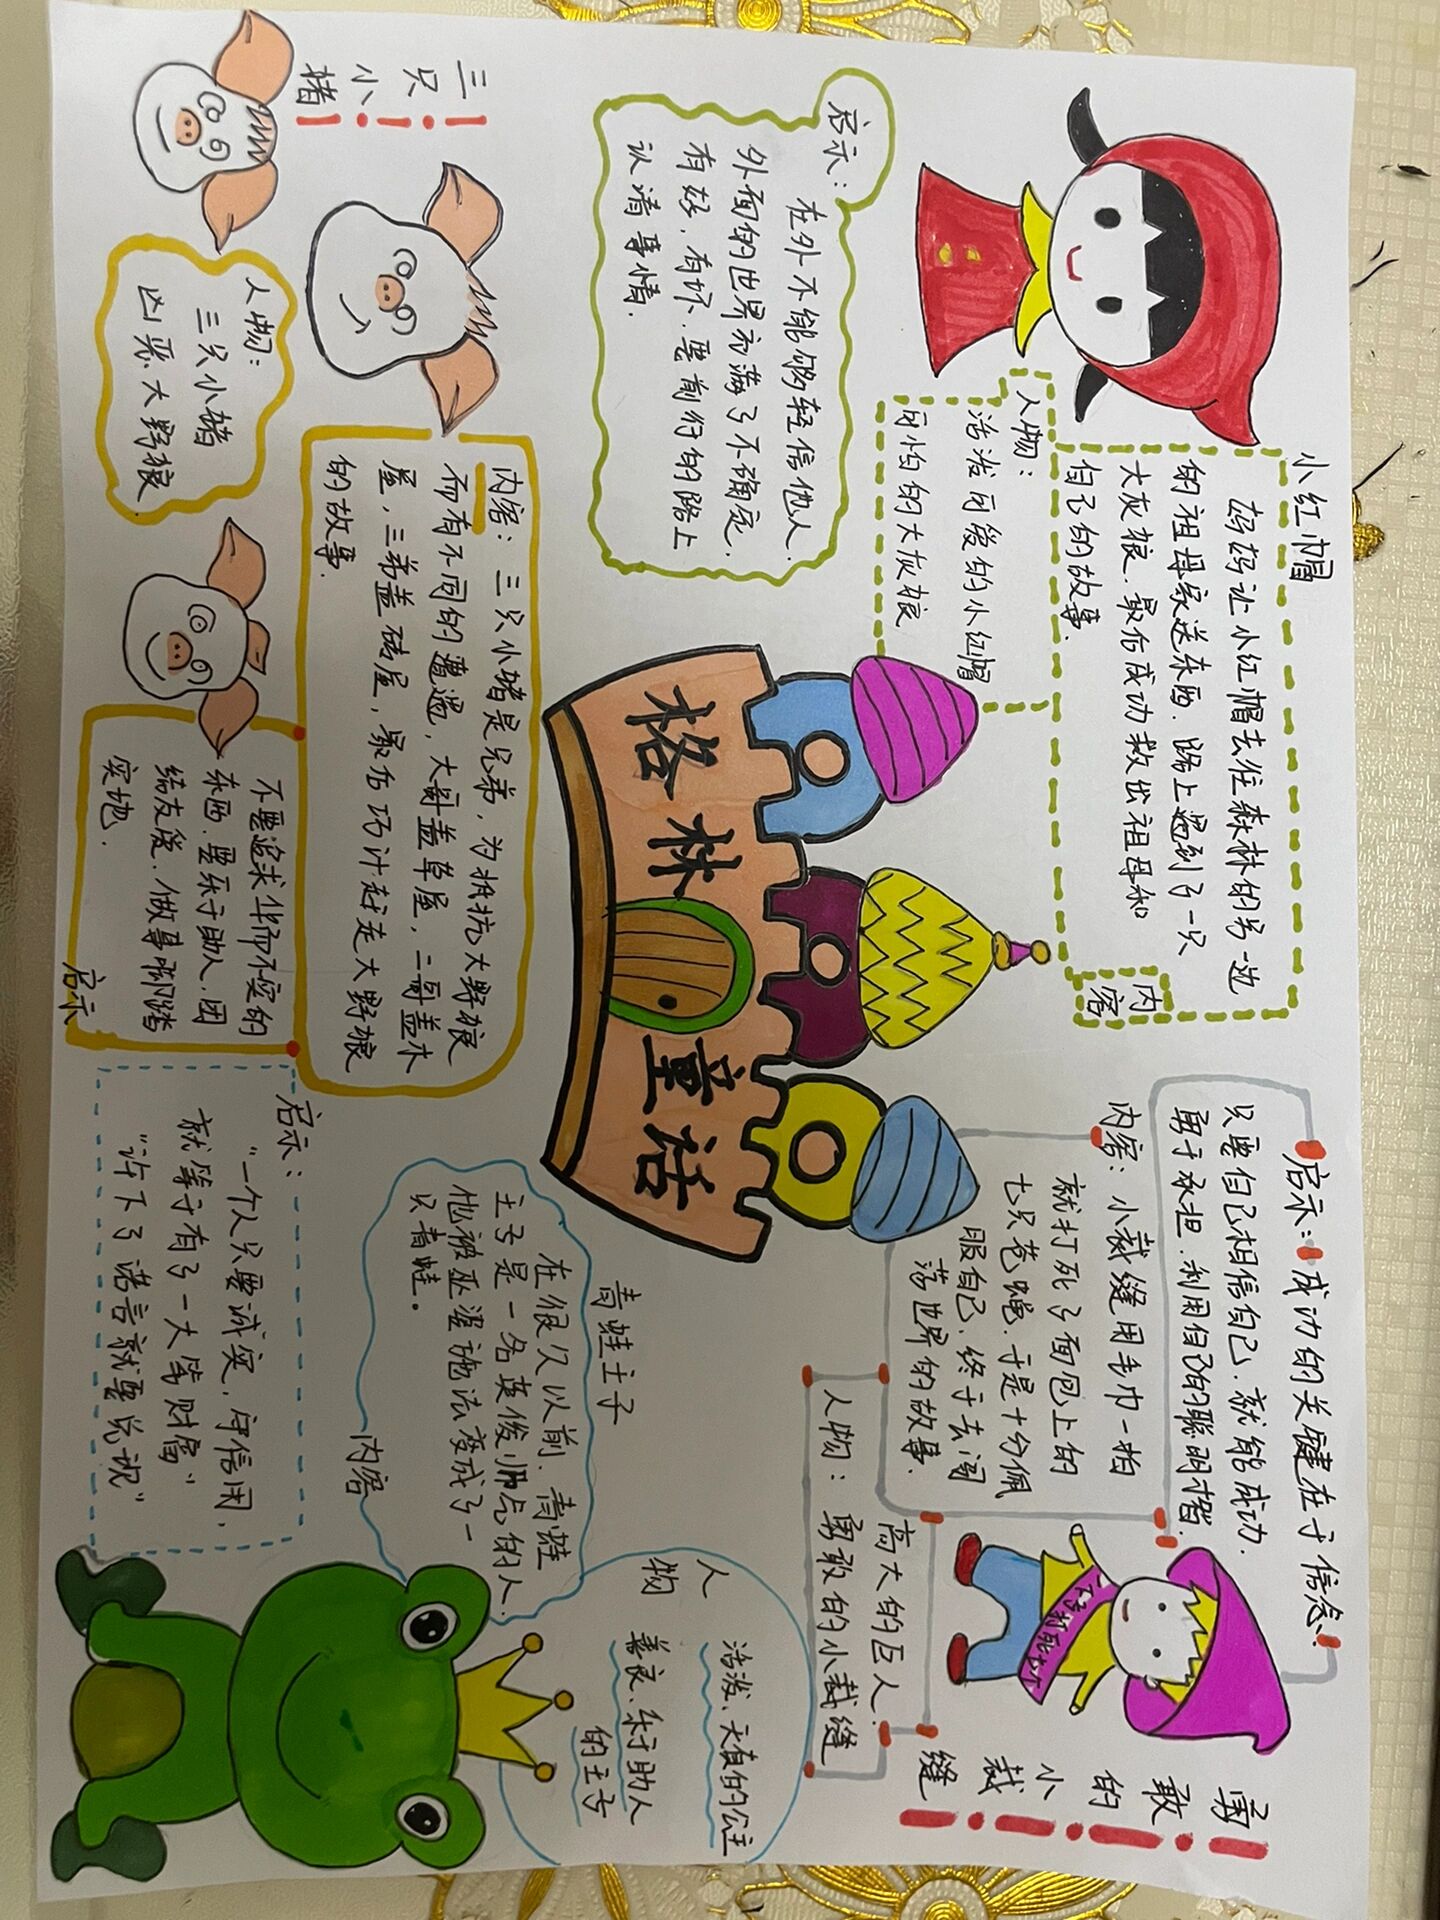 格林童话
小红帽
妈妈让小红帽去往森林的另一边
的祖母家送东西，路上遇到了一只
大灰狼，最后成功救出祖母和
自己的故事.
内容
人物：
活泼可爱的小红帽
可怕的大灰狼
启示：
在外不能够轻信他人.
外面的世界充满了不确定，
有好，有坏，要前行的路上
认清事情.
三只小猪
人物：
三只小猪
凶恶大野狼
内容：三只小猪是兄弟，为抵抗大野狼
而有不同的遭遇，大哥盖草屋，二哥盖木
屋，三弟盖砖屋，最后巧计赶走大野狼
的故事.
不要追求华而不实的
东西，要乐于助人，团
结友爱，做事脚踏
实地.
启示
勇敢的小裁缝
启示：成功的关键在于信念！
只要自己相信自己，就能成功.
勇于承担，利用自己的聪明才智.
内容：小裁缝用毛巾一拍
就打死了面包上的
七只苍蝇，于是十分佩
服自己，终于去闯
荡世界的故事.
人物：
高大的巨人.
勇敢的小裁缝
一下子打死七个
青蛙王子
在很久以前，青蛙
王子是一名英俊帅气的人.
他被巫婆施法变成了一
只青蛙。
内容
人物
活泼、天真的公主
善良、乐于助人
的王子
启示：
“一个人只要诚实，守信用，
就等于有了一大笔财富”
“许下了诺言就要兑现”